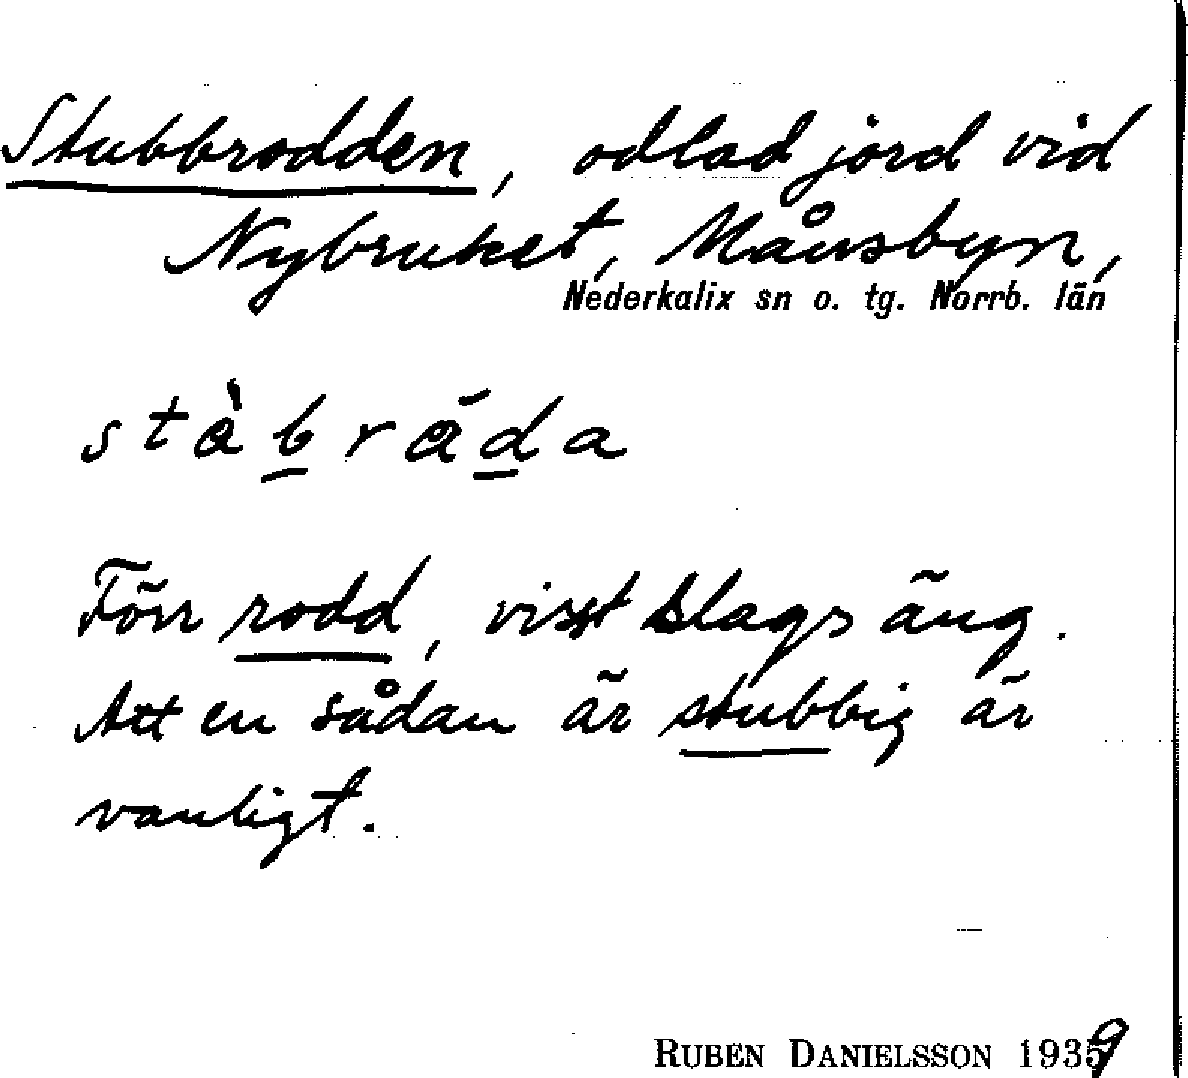 Stubbrodden, odlad jord vid
Nybruket, Månsbyn,
Nederkalix sn o. tg. Norrb. län
Förr rodd, visst slags äng.
Att en sådan är stubbig är
vanligt.
RUBEN DANIELSSON 1939